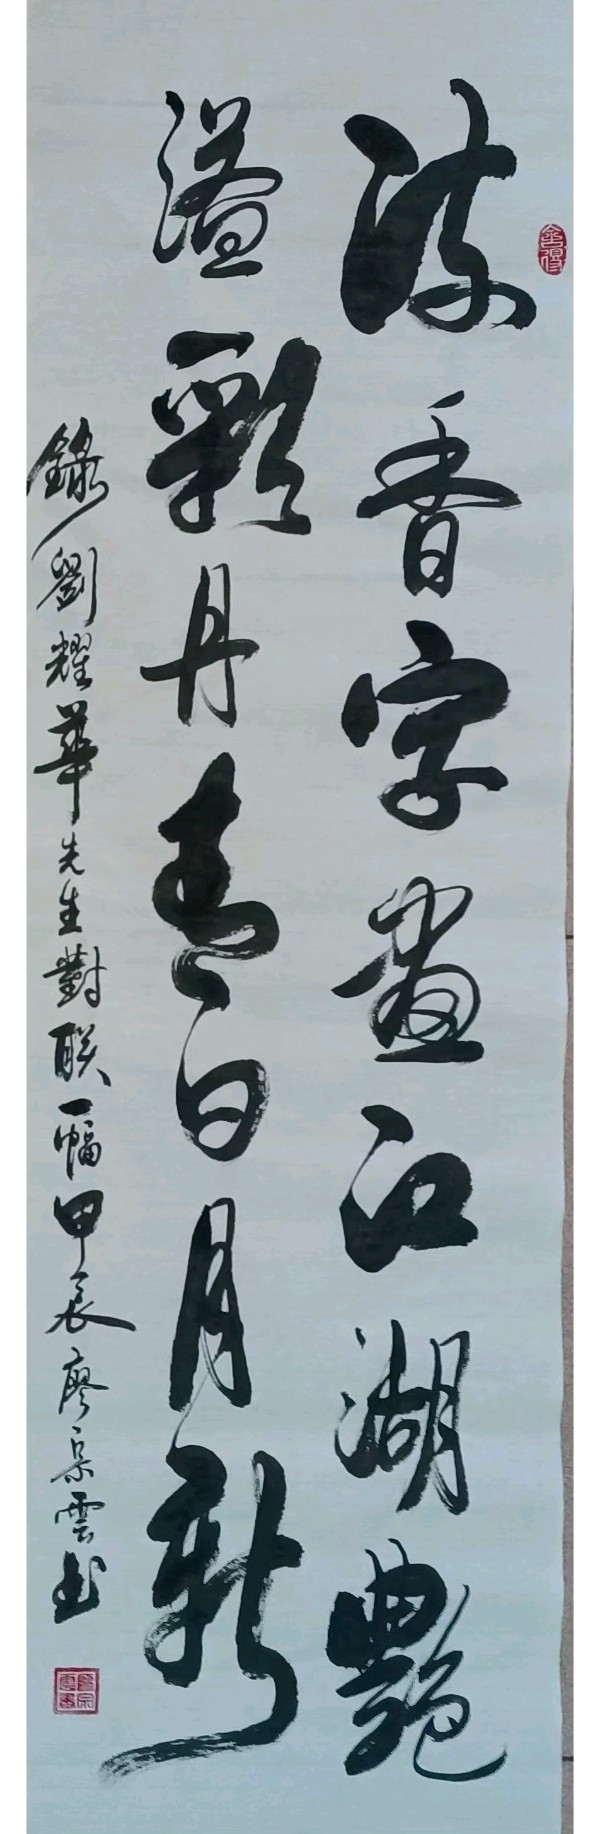 香字畫江湖艷
溢彩丹青日月新
錄劉耀華先生對联一幅甲辰廖雲书